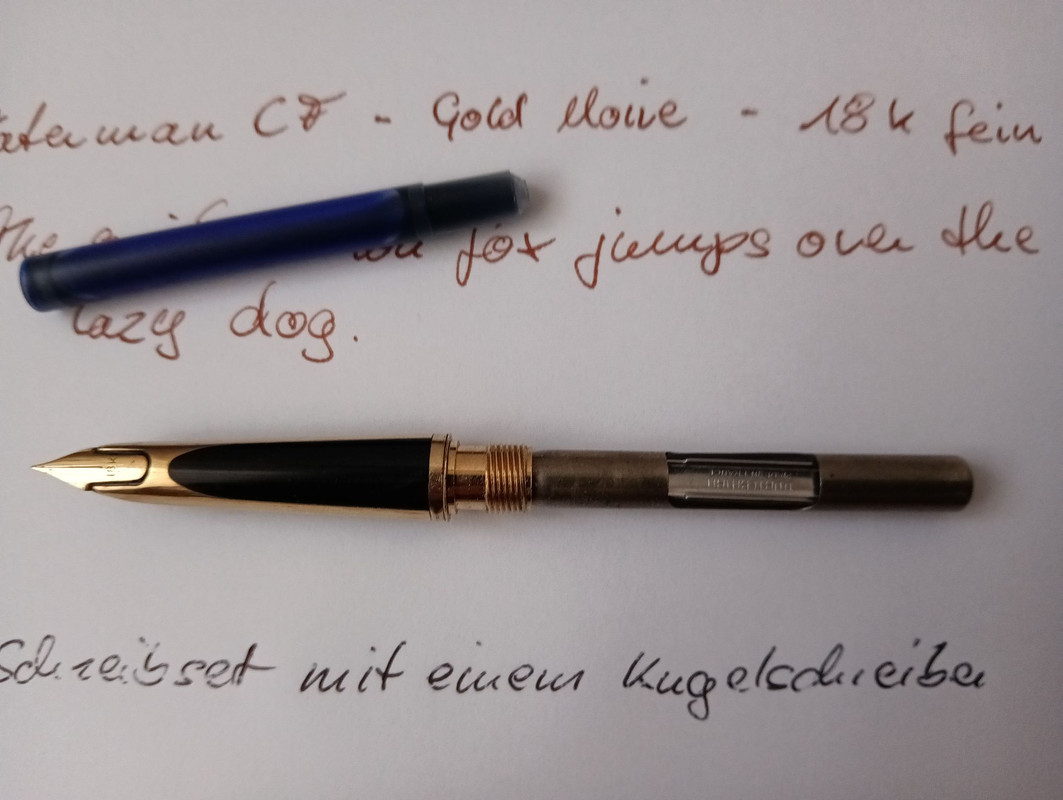 aterman CF - Gold Moire - 18k fein
the fox jumps over the
lazy dog.
18K
Schreibset mit einem Kugelschreiber